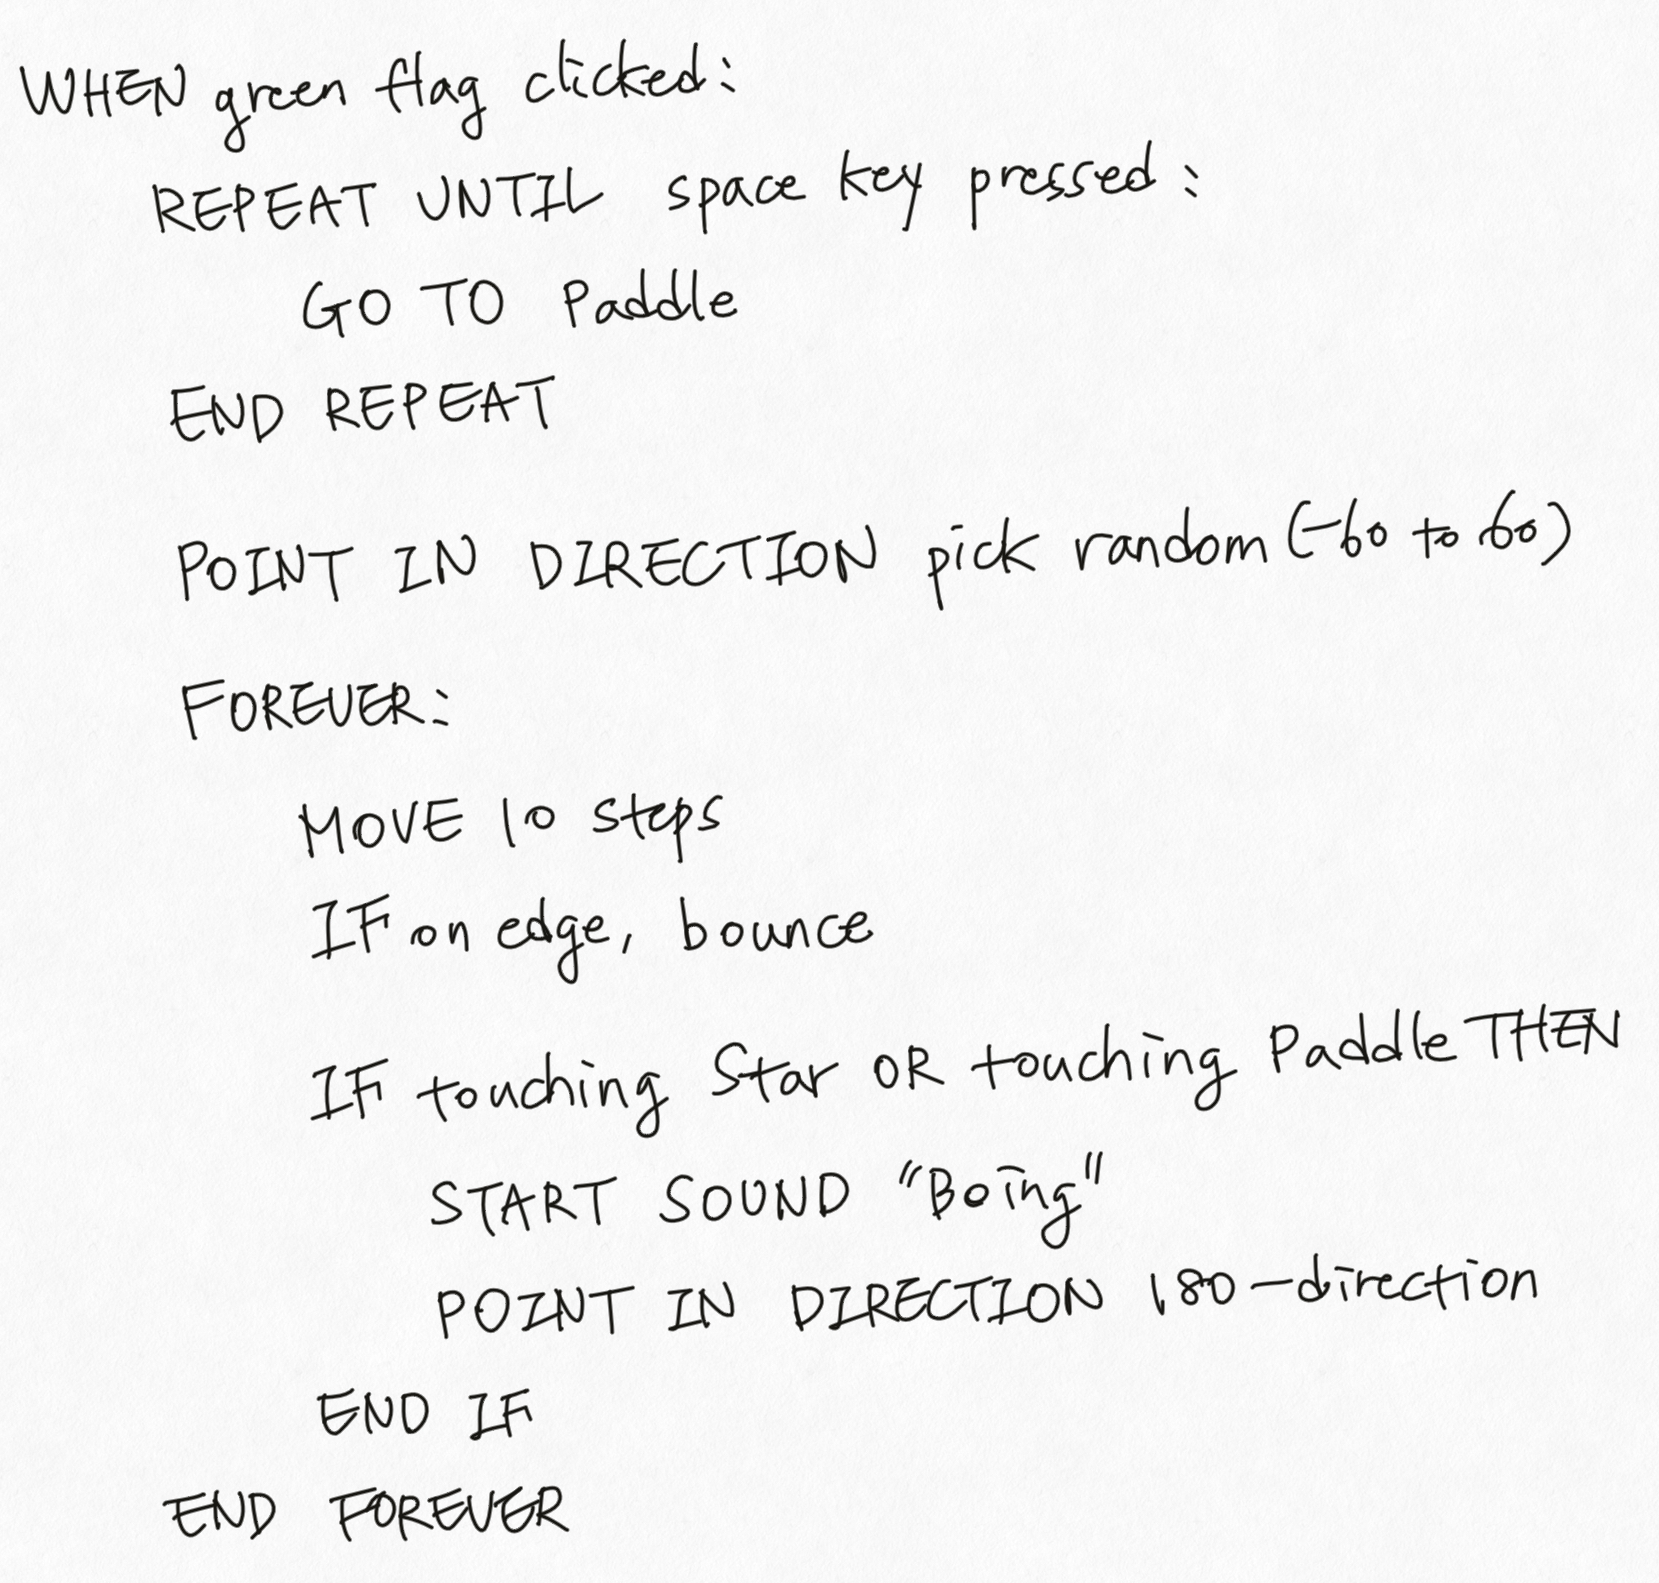 WHEN green flag clicked:
REPEAT UNTIL space key pressed:
GO TO Paddle
END REPEAT
POINT IN DIRECTION pick random (-60 to 60)
FOREVER:
MOVE 10 steps
IF on edge, bounce
IF touching Star OR touching Paddle THEN
START SOUND "Boing"
POINT IN DIRECTION 180-direction
END IF
END FOREVER